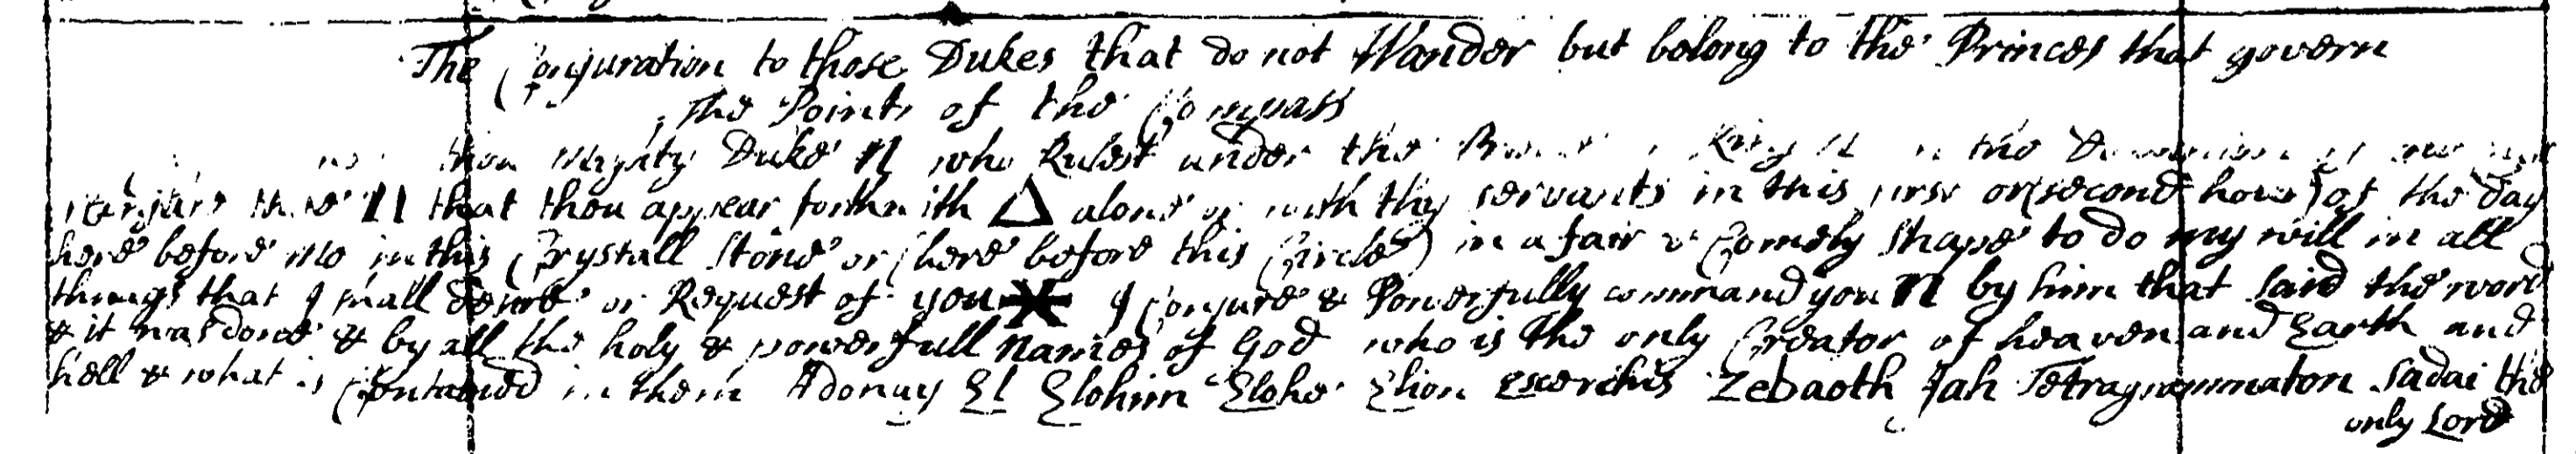 The Conjuration to those Dukes that do not Wander but belong to the Princes that govern
the Points of the Compass
thou Mighty Duke N who Rulest under the King in the
thee N that thou appear forthwith △ alone or with thy servants in this first or (second hour) of the day
here before me in this Crystall Stone or (here before this Circle) in a fair & Comely Shape to do my will in all
things that I shall desire or Request of you I Conjure & Powerfully command you N by him that said the word
& it was done & by all the holy & powerfull names of God who is the only Creator of heaven and Earth and
hell & what is Contained in them Adonay El Elohim Elohe Elion Escerchis Zebaoth Jah Tetragrammaton Sadai the
only Lord